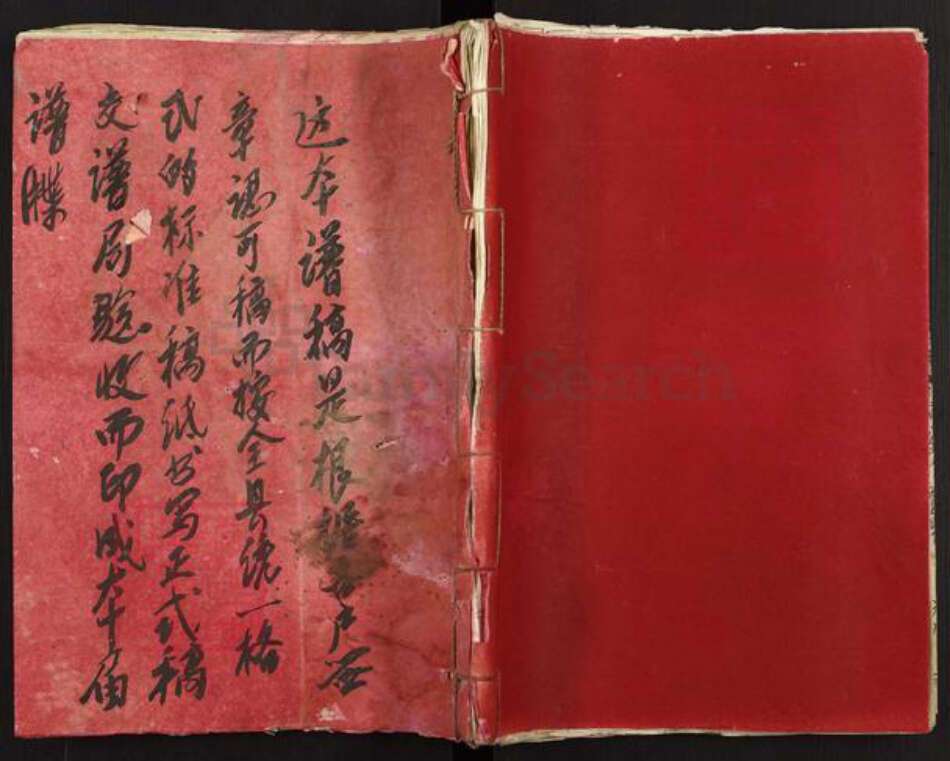 这本谱稿是根据各户签
章认可稿而按全县统一格
式的标准稿纸书写正式稿
交谱局验收而印成本届
谱牒
FamilySearch